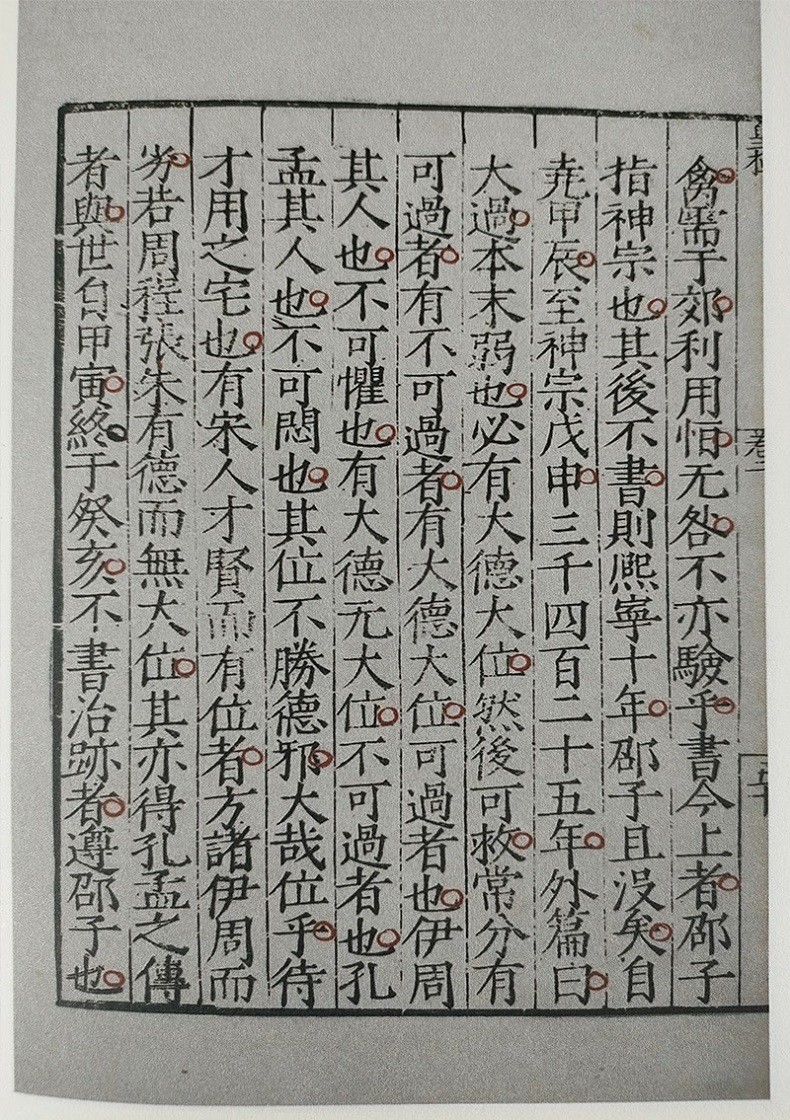 禽需于郊利用恒无咎不亦驗乎書今上者邵子
指神宗也其後不書則熈寧十年邵子且没矣自
堯甲辰至神宗戊申三千四百二十五年外篇曰
大過本末弱也必有大德大位然後可救常分有
可過者有不可過者有大德大位可過者也伊周
其人也不可懼也有大德无大位不可過者也孔
孟其人也不可悶也其位不勝德邪大哉位乎待
才用之宅也有宋人才賢而有位者方諸伊周而
劣若周程張朱有德而無大位其亦得孔孟之傳
者與世自甲寅終于癸亥不書治跡者遵邵子也